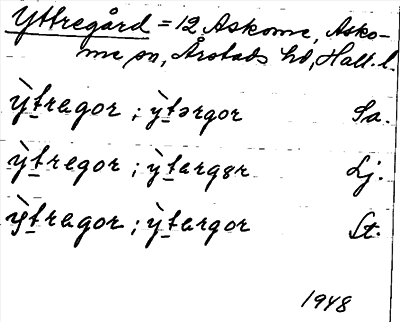 Yttregård = 12 Askome, Asko-
me sn, Årstads hd, Hall. l.
ỳtregor ; ỳtərgor Sa.
ỳtregor ; ỳtergɤr Lj.
ỳtregor ; ỳtergor St.
1948